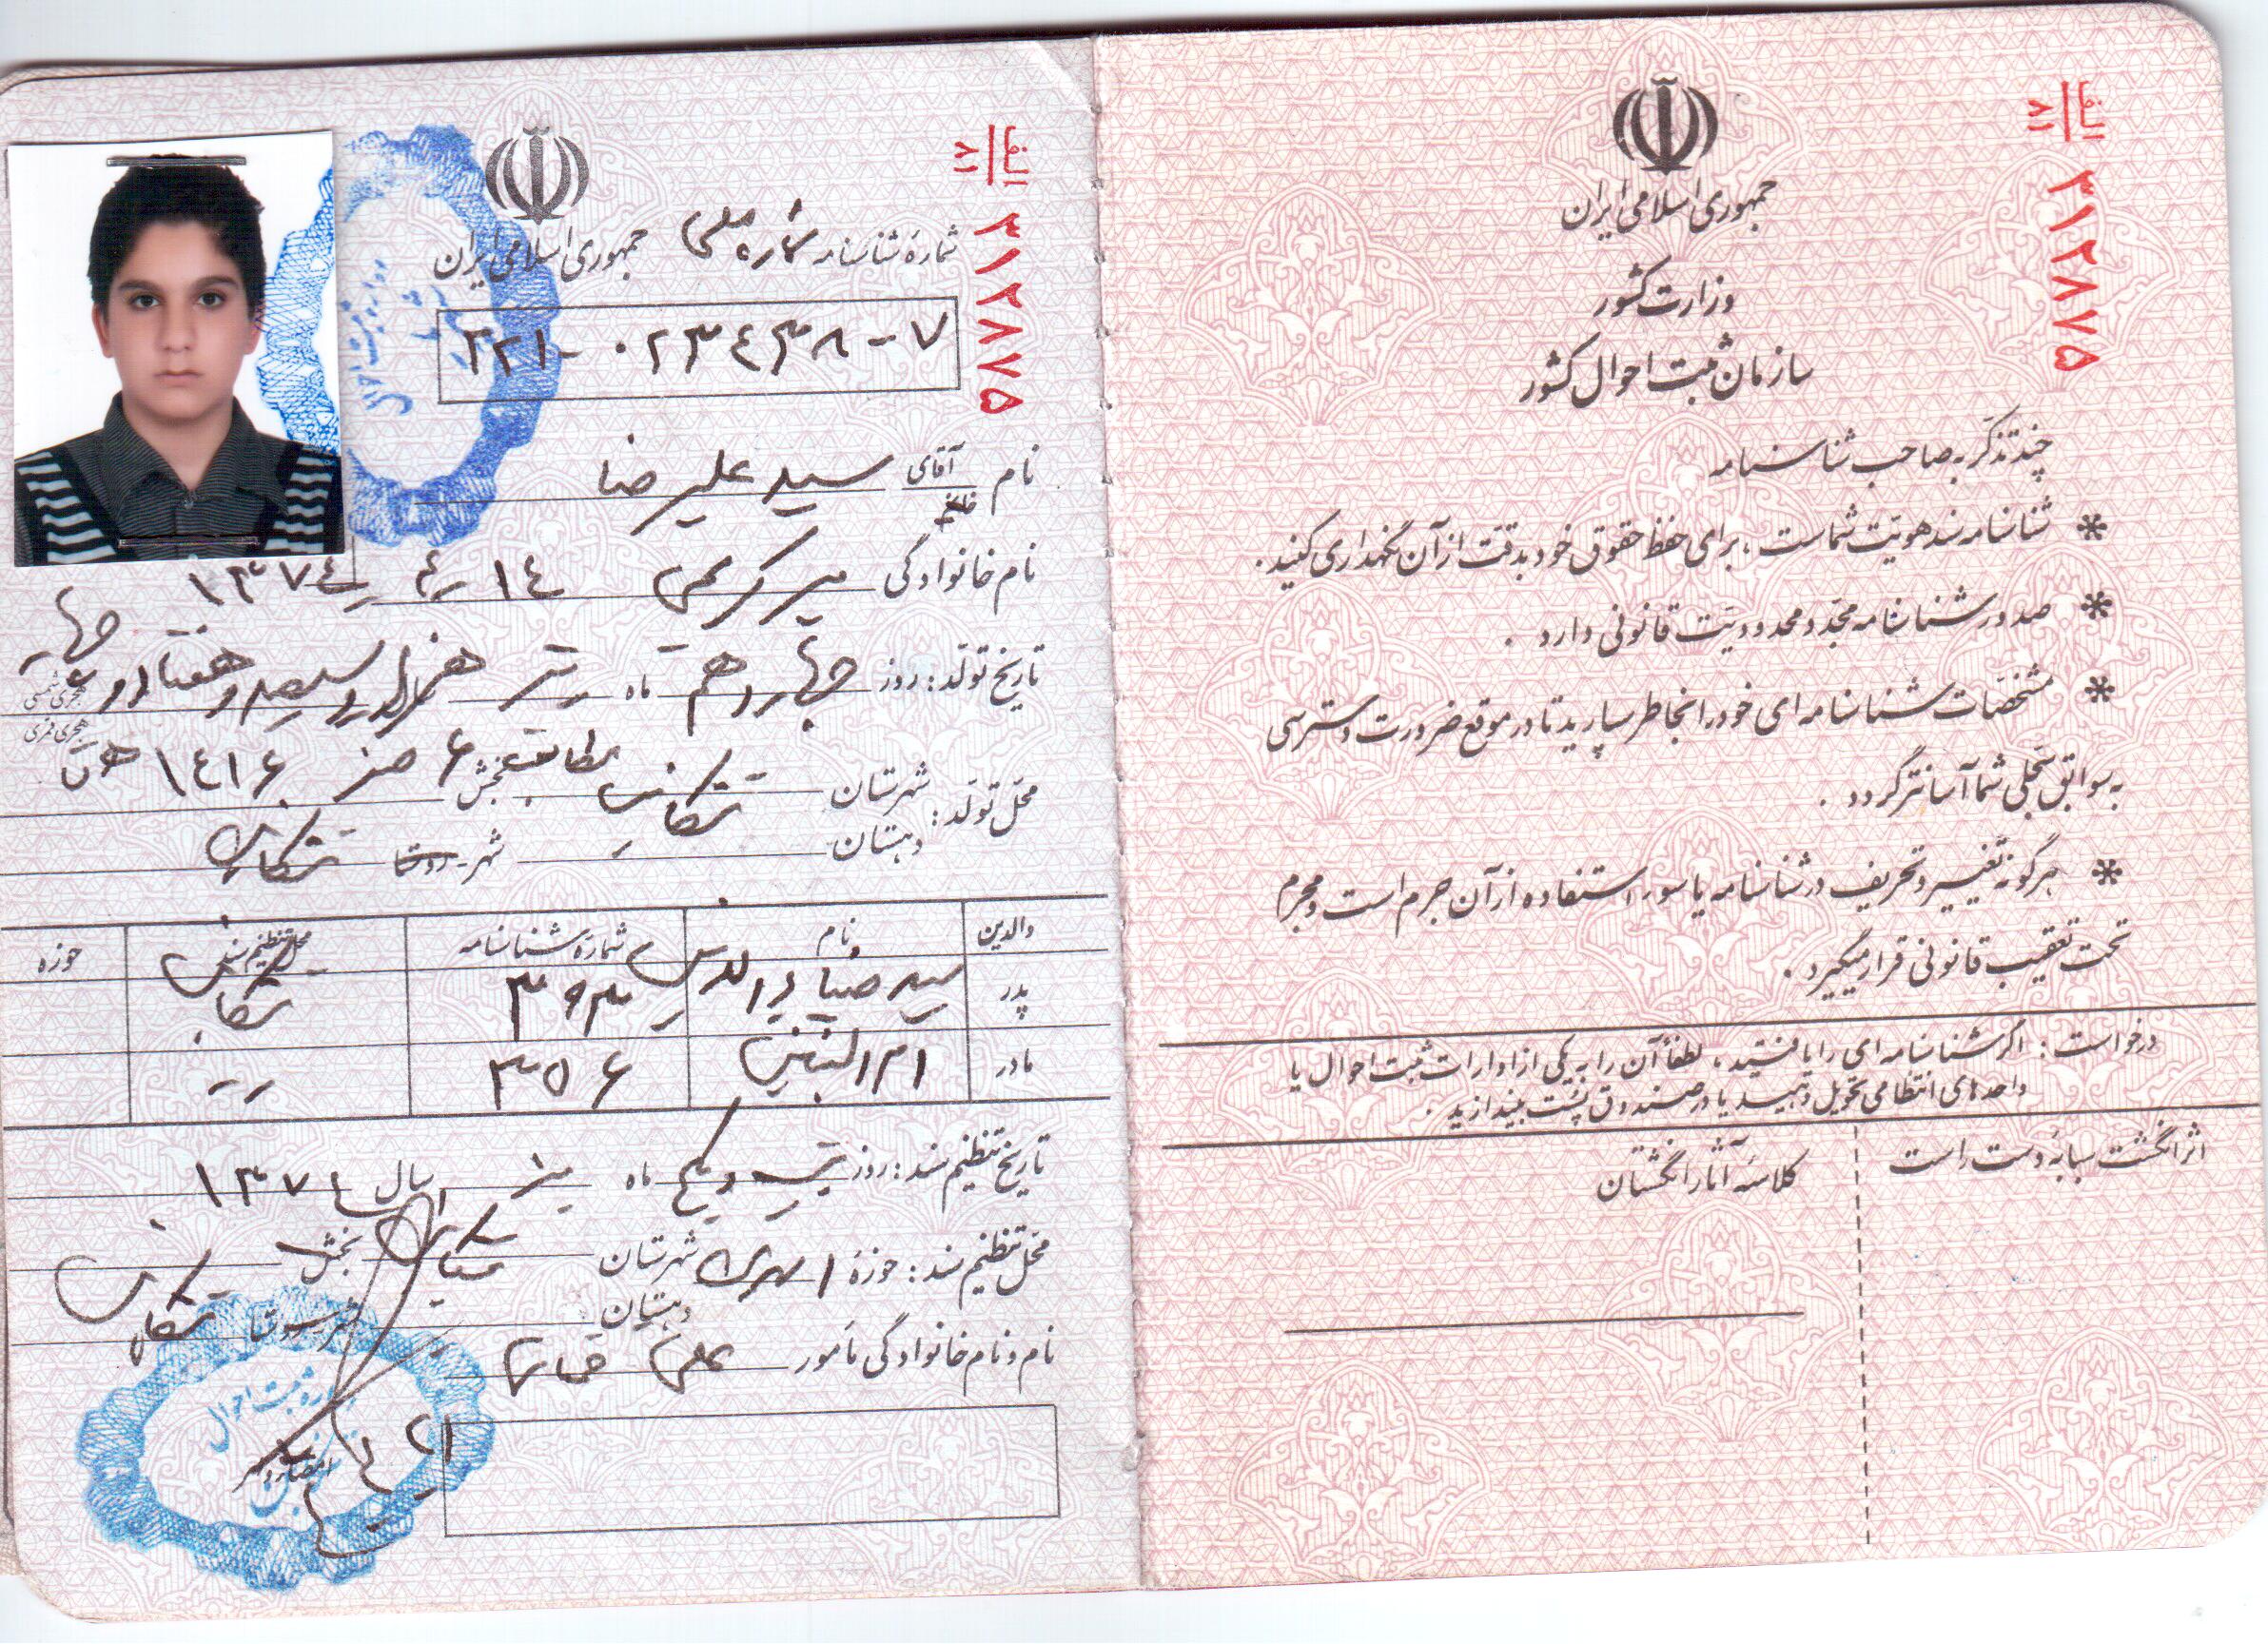 الف/۸۱ ۳۱۲۸۷۵
جمهوری اسلامی ایران
وزارت کشور
سازمان ثبت احوال کشور
چند تذکر به صاحب شناسنامه
* شناسنامه سند هویت شماست ، برای حفظ حقوق خود بدقت از آن نگهداری کنید .
* صدور شناسنامه مجدد محدودیت قانونی دارد .
* مشخصات شناسنامه ای خود را بخاطر بسپارید تا در موقع ضرورت دسترسی
به سوابق سجلی شما آسانتر گردد .
* هرگونه تغییر و تحریف در شناسنامه یا سوء استفاده از آن جرم است و مجرم
تحت تعقیب قانونی قرار میگیرد .
درخواست : اگر شناسنامه ای را یافتید ، لطفاً آن را به یکی از ادارات ثبت احوال یا
واحدهای انتظامی تحویل دهید یا در صندوق پست بیندازید .
اثر انگشت سبابه دست راست
کلاسه آثار انگشتان
الف/۸۱ ۳۱۲۸۷۵
جمهوری اسلامی ایران
شماره شناسنامه شماره ملی
نام آقای سید علیرضا
نام خانوادگی میرکریمی ۱۴ ۱۳۷۴
تاریخ تولد : روز چهاردهم ماه تیر هزار و سیصد و هفتاد و چهار هجری شمسی
مطابق ۶ صفر ۱۴۱۶ هجری قمری
محل تولد : شهرستان تنکابن بخش
دهستان شهر - روستا تنکابن
والدین نام شماره شناسنامه محل تنظیم سند حوزه
پدر سید ضیاءالدین ۳۹۳ تنکابن
مادر ام البنین ۳۵۶ //
تاریخ تنظیم سند : روز سی و یکم ماه سال
محل تنظیم سند : حوزه شهرستان تنکابن بخش
دهستان شهر - روستا تنکابن
نام و نام خانوادگی مأمور علی